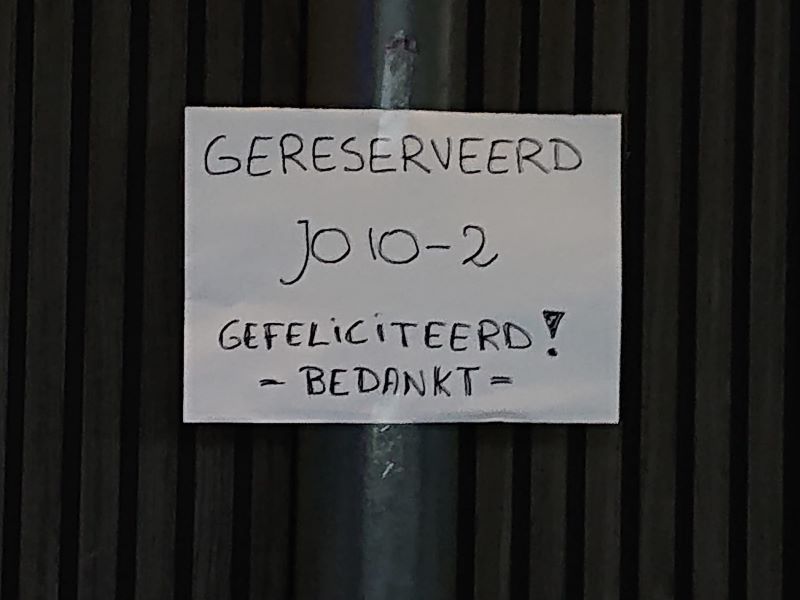 GERESERVEERD
JO10-2
GEFELICITEERD!
- BEDANKT =